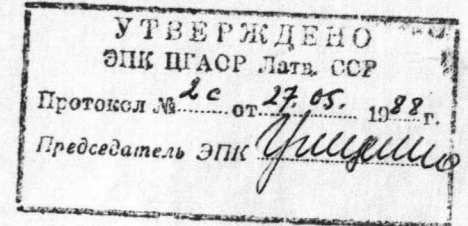 УТВЕРЖДЕНО
ЭПК ЦГАОР Латв. ССР
Протокол № 2с от 27.05. 1988 г.
Председатель ЭПК